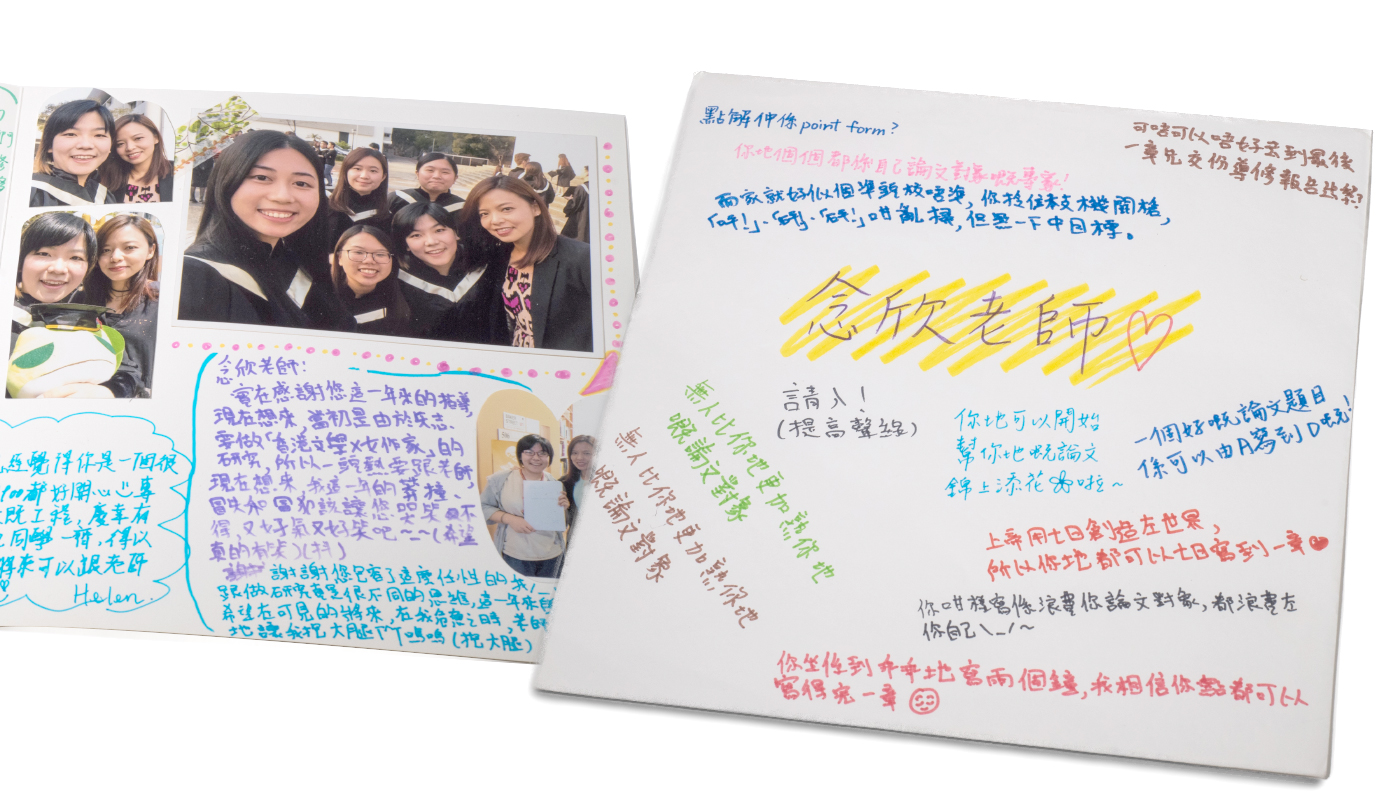 念欣老師:
實在感謝您這一年來的指導,
現在想來,當初是由於矢志
要做「香港文學X女作家」的
研究,所以一頭熱要跟老師,
現在想來,我這一年的莽撞、
冒失和冒犯該讓您哭笑不
得,又好氣又好笑吧~~(希望
真的有笑)(抖)
謝謝您包容了這麼任性的我!
跟做研究是很不同的思維,這一年來
希望在可見的將來,在我危急之時,老師
地讓我抱大腿TT嗚嗚(抱大腿)
覺得你是一個很
都好開心 專
既工程,慶幸有
同學一齊,得以
將來可以跟老師
Helen.
點解仲係point form?
可唔可以唔好去到最後
一章先交份導修報告出黎?
你地個個都係自己論文對象嘅專家!
而家就好似個準新校唔準,你拎住枝機關槍,
「呯!」、「呯!」、「呯!」咁亂掃,但無一下中目標。
念欣老師♡
請入!
(提高聲線)
無人比你地更加熟你地
嘅論文對象
無人比你地更加熟你地
嘅論文對象
你地可以開始
幫你地嘅論文
錦上添花啦~
一個好嘅論文題目
係可以由A寫到D嘅!
上帝用七日創造左世界,
所以你地都可以七日寫到一章♥
你咁樣寫係浪費你論文對象,都浪費左
你自己\_/~
你坐低到乖乖地寫兩個鐘,我相信你點都可以
寫得完一章